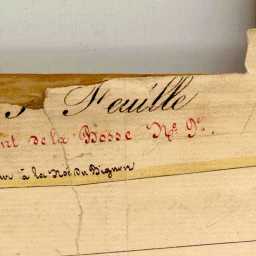 Feuille
nt de la Bosse N.º 9.
à la Noë du Bignon